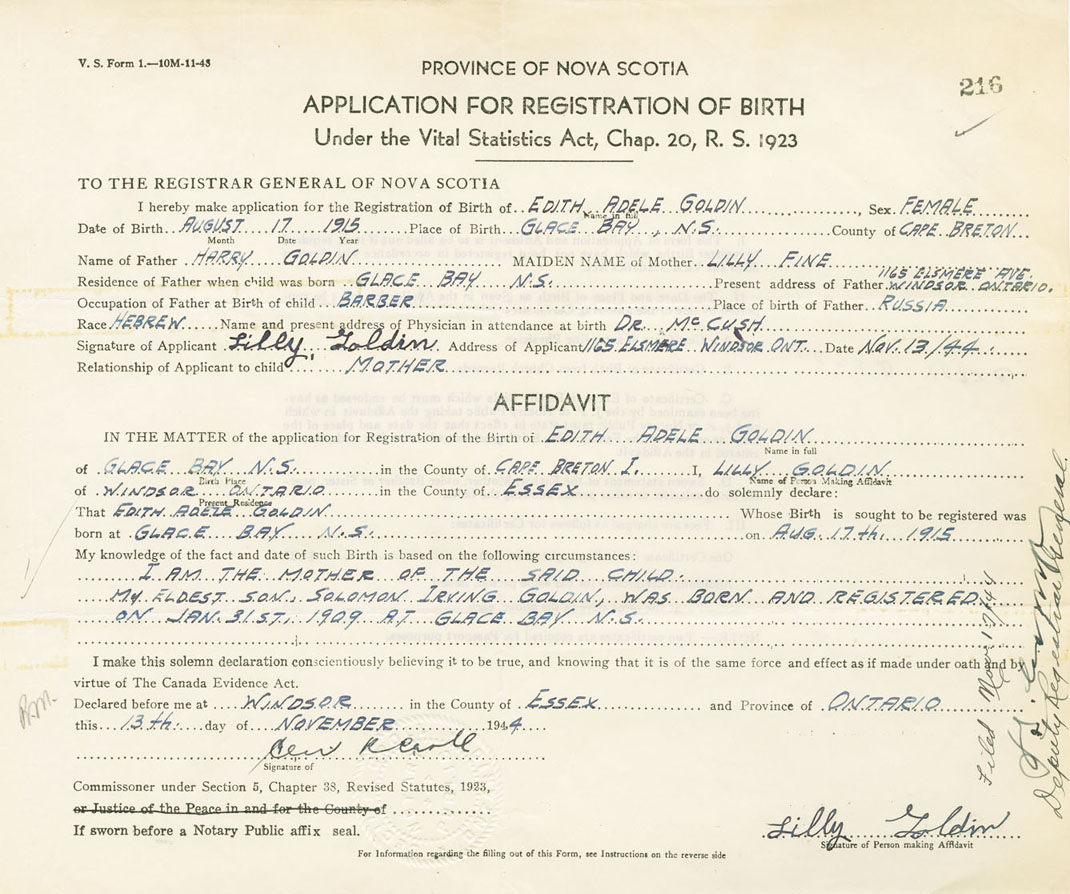 V. S. Form 1.—10M-11-43
PROVINCE OF NOVA SCOTIA
216
APPLICATION FOR REGISTRATION OF BIRTH
Under the Vital Statistics Act, Chap. 20, R. S. 1923
TO THE REGISTRAR GENERAL OF NOVA SCOTIA
I hereby make application for the Registration of Birth of EDITH ADELE GOLDIN, Sex FEMALE
Name in full
Date of Birth AUGUST 17 1915 Place of Birth GLACE BAY, N.S. County of CAPE BRETON
Month Date Year
Name of Father HARRY GOLDIN MAIDEN NAME of Mother LILLY FINE
1165 ELSMERE AVE.
Residence of Father when child was born GLACE BAY N.S. Present address of Father WINDSOR ONTARIO.
Occupation of Father at Birth of child BARBER Place of birth of Father RUSSIA
Race HEBREW Name and present address of Physician in attendance at birth DR. McCUSH
Signature of Applicant Lilly Goldin Address of Applicant 1165 ELSMERE WINDSOR ONT. Date NOV. 13/44
Relationship of Applicant to child MOTHER
AFFIDAVIT
IN THE MATTER of the application for Registration of the Birth of EDITH ADELE GOLDIN
Name in full
of GLACE BAY N.S. in the County of CAPE BRETON I. I, LILLY GOLDIN
Birth Place Name of Person Making Affidavit
of WINDSOR ONTARIO in the County of ESSEX do solemnly declare:
Present Residence
That EDITH ADELE GOLDIN Whose Birth is sought to be registered was
born at GLACE BAY N.S. on AUG. 17th. 1915
My knowledge of the fact and date of such Birth is based on the following circumstances:
I AM THE MOTHER OF THE SAID CHILD.
MY ELDEST SON, SOLOMON IRVING GOLDIN, WAS BORN AND REGISTERED
ON JAN. 31ST, 1909 AT GLACE BAY N.S.
I make this solemn declaration conscientiously believing it to be true, and knowing that it is of the same force and effect as if made under oath and by
virtue of The Canada Evidence Act.
R.M.
Declared before me at WINDSOR in the County of ESSEX and Province of ONTARIO
this 13th. day of NOVEMBER 1944
Signature of
Commissioner under Section 5, Chapter 38, Revised Statutes, 1923,
or Justice of the Peace in and for the County of
If sworn before a Notary Public affix seal.
Lilly Goldin
Signature of Person making Affidavit
For Information regarding the filling out of this Form, see Instructions on the reverse side
Filed Nov 17/44
Deputy Registrar General